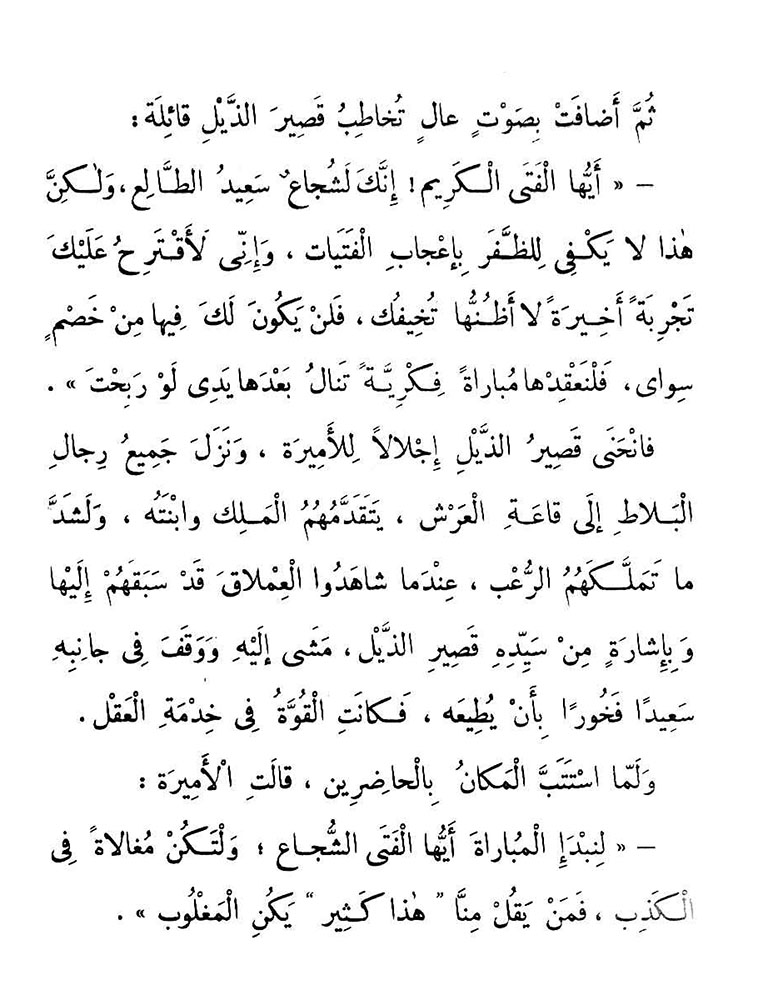 ثُمَّ أَضافَتْ بِصَوْتٍ عالٍ تُخاطِبُ قَصِيرَ الذَّيْلِ قائِلَة :
– « أَيُّها الْفَتَى الْـكَرِيم! إِنَّكَ لَشُجاعٌ سَعِيدُ الطَّالِع ، وَلٰـكِنَّ
هٰذا لا يَكْـفِى لِلظَّـفَرَ بِإعْجابِ الْفَتَيات ، وَإِنِّى لَأَقْـتَرِحُ عَلَيْكَ
تَجْرِبَةً أَخِـيرَةً لا أَظُـنُّها تُخِيفُك ، فَلَنْ يَكُونَ لَكَ فِيها مِنْ خَصْمٍ
سِواى ، فَلْنَعْقِدْها مُباراةً فِـكْرِيَّـةً تَنالُ بَعْدَها يَدِى لَوْ رَبِحْتَ » .
فانْحَنَى قَصِيرُ الذَّيْلِ إِجْلالاً لِلأَمِيرَة ، وَنَزَلَ جَمِيعُ رِجالِ
الْبَـلاطِ إِلَى قاعَـةِ الْعَرْش ، يَتَقَدَّمُهُمُ الْمَـلِك وابْنَتُه ، وَلَشَدَّ
ما تَمَلَّـكَهُمُ الرُّعْب ، عِنْدَما شاهَدُوا الْعِمْلاقَ قَدْ سَبَقَهُمْ إِلَيْها
وَبِإِشارَةٍ مِنْ سَيِّدِهِ قَصِيرِ الذَّيْل ، مَشَى إِلَيْهِ وَوَقَفَ فِى جانِبِهِ
سَعِيدًا فَخُورًا بِأَنْ يُطِيعَه ، فَـكانَتِ الْقُوَّةُ فِى خِدْمَةِ الْعَقْل .
وَلَمّا اسْتَتَبَّ الْمَكانُ بِالْحاضِرِين ، قالَتِ الْأَمِيرَة :
– « لِنبْدَإِ الْمُباراةَ أَيُّها الْفَتَى الشُّجاع ؛ وَلْتَـكُنْ مُغالاةً فِى
الْـكَذِب ، فَمَنْ يَقُلْ مِنَّا " هٰذا كَـثِير " يَكُنِ الْمَغْلُوب » .